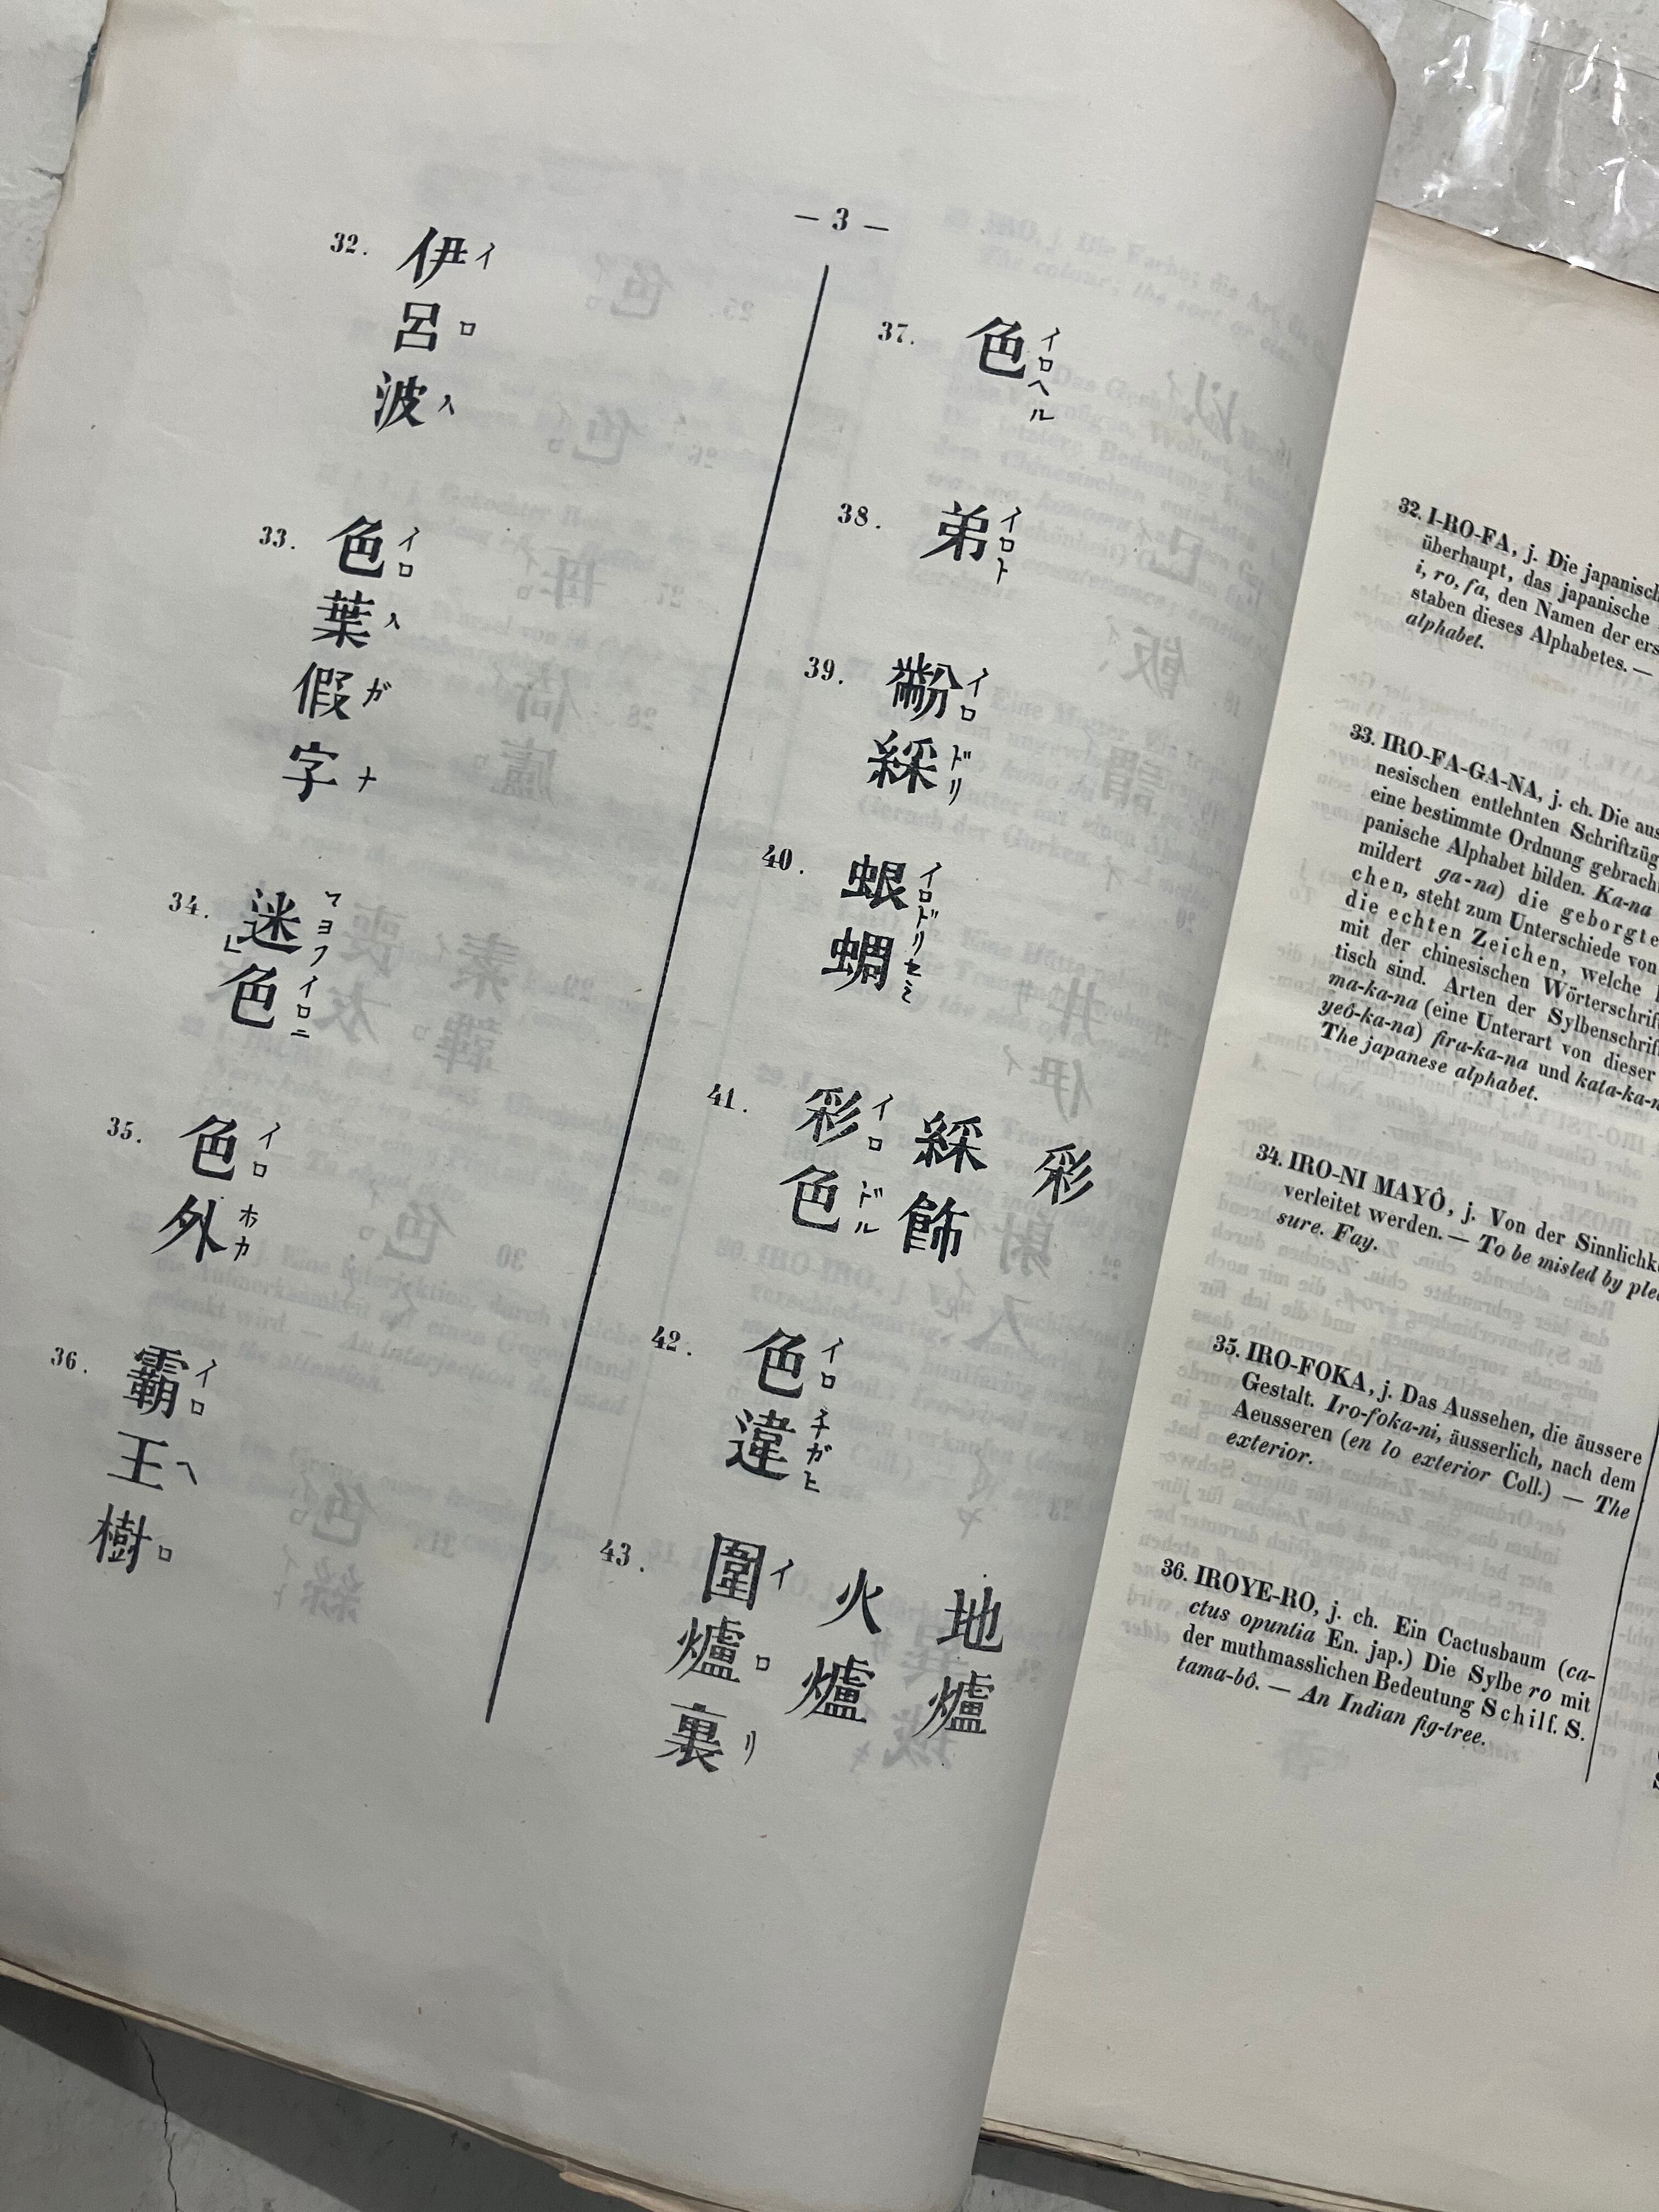 — 3 —
32. 伊イ呂ロ波ハ
33. 色イロ葉ハ假ガ字ナ
34. 迷マヨフ色イロニ
35. 色イロ外ホカ
36. 霸イロ王ヘ樹ロ
37. 色イロヘル
38. 弟イロト
39. 黺イロ綵ドリ
40. 蛝イロドリ蜩セミ
41. 彩イロ色ドル
綵飾
彩
42. 色イロ違チガヒ
43. 圍イ爐ロ裏リ
火爐
地爐
32. I-RO-FA, j. Die japanisch
überhaupt, das japanische
i, ro, fa, den Namen der ers
staben dieses Alphabetes. —
alphabet.
33. IRO-FA-GA-NA, j. ch. Die aus
nesischen entlehnten Schriftzüg
eine bestimmte Ordnung gebrach
panische Alphabet bilden. Ka-na
mildert ga-na) die geborgte
chen, steht zum Unterschiede von
die echten Zeichen, welche
mit der chinesischen Wörterschrif
tisch sind. Arten der Sylbenschrif
ma-ka-na (eine Unterart von dieser
yeô-ka-na) fira-ka-na und kata-ka-n
The japanese alphabet.
34. IRO-NI MAYÔ, j. Von der Sinnlichk
verleitet werden. — To be misled by plea
sure. Fay.
35. IRO-FOKA, j. Das Aussehen, die äussere
Gestalt. Iro-foka-ni, äusserlich, nach dem
Aeusseren (en lo exterior Coll.) — The
exterior.
36. IROYE-RO, j. ch. Ein Cactusbaum (ca-
ctus opuntia En. jap.) Die Sylbe ro mit
der muthmasslichen Bedeutung Schilf. S.
tama-bô. — An Indian fig-tree.